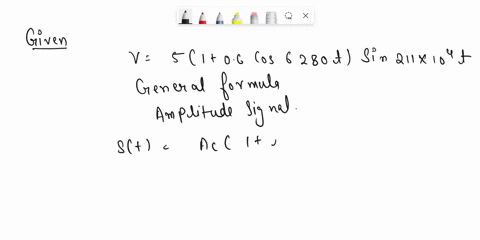 Given
V = 5(1+0.6 Cos 6280t) Sin 211×10⁴t
General formula
Amplitude Signal.
S(t) = Ac( 1+